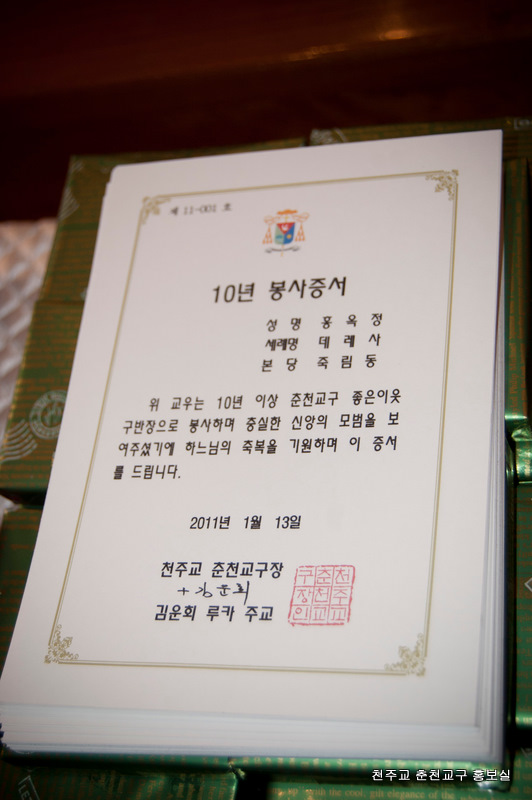 제 11-001 호
10년 봉사증서
성 명 홍 옥 정
세례명 데 레 사
본 당 죽 림 동
위 교우는 10년 이상 춘천교구 좋은이웃
구반장으로 봉사하며 충실한 신앙의 모범을 보
여주셨기에 하느님의 축복을 기원하며 이 증서
를 드립니다.
2011년 1월 13일
천주교 춘천교구장
+ 김운회
김운회 루카 주교
구춘천
장천주
인교교
천주교 춘천교구 홍보실